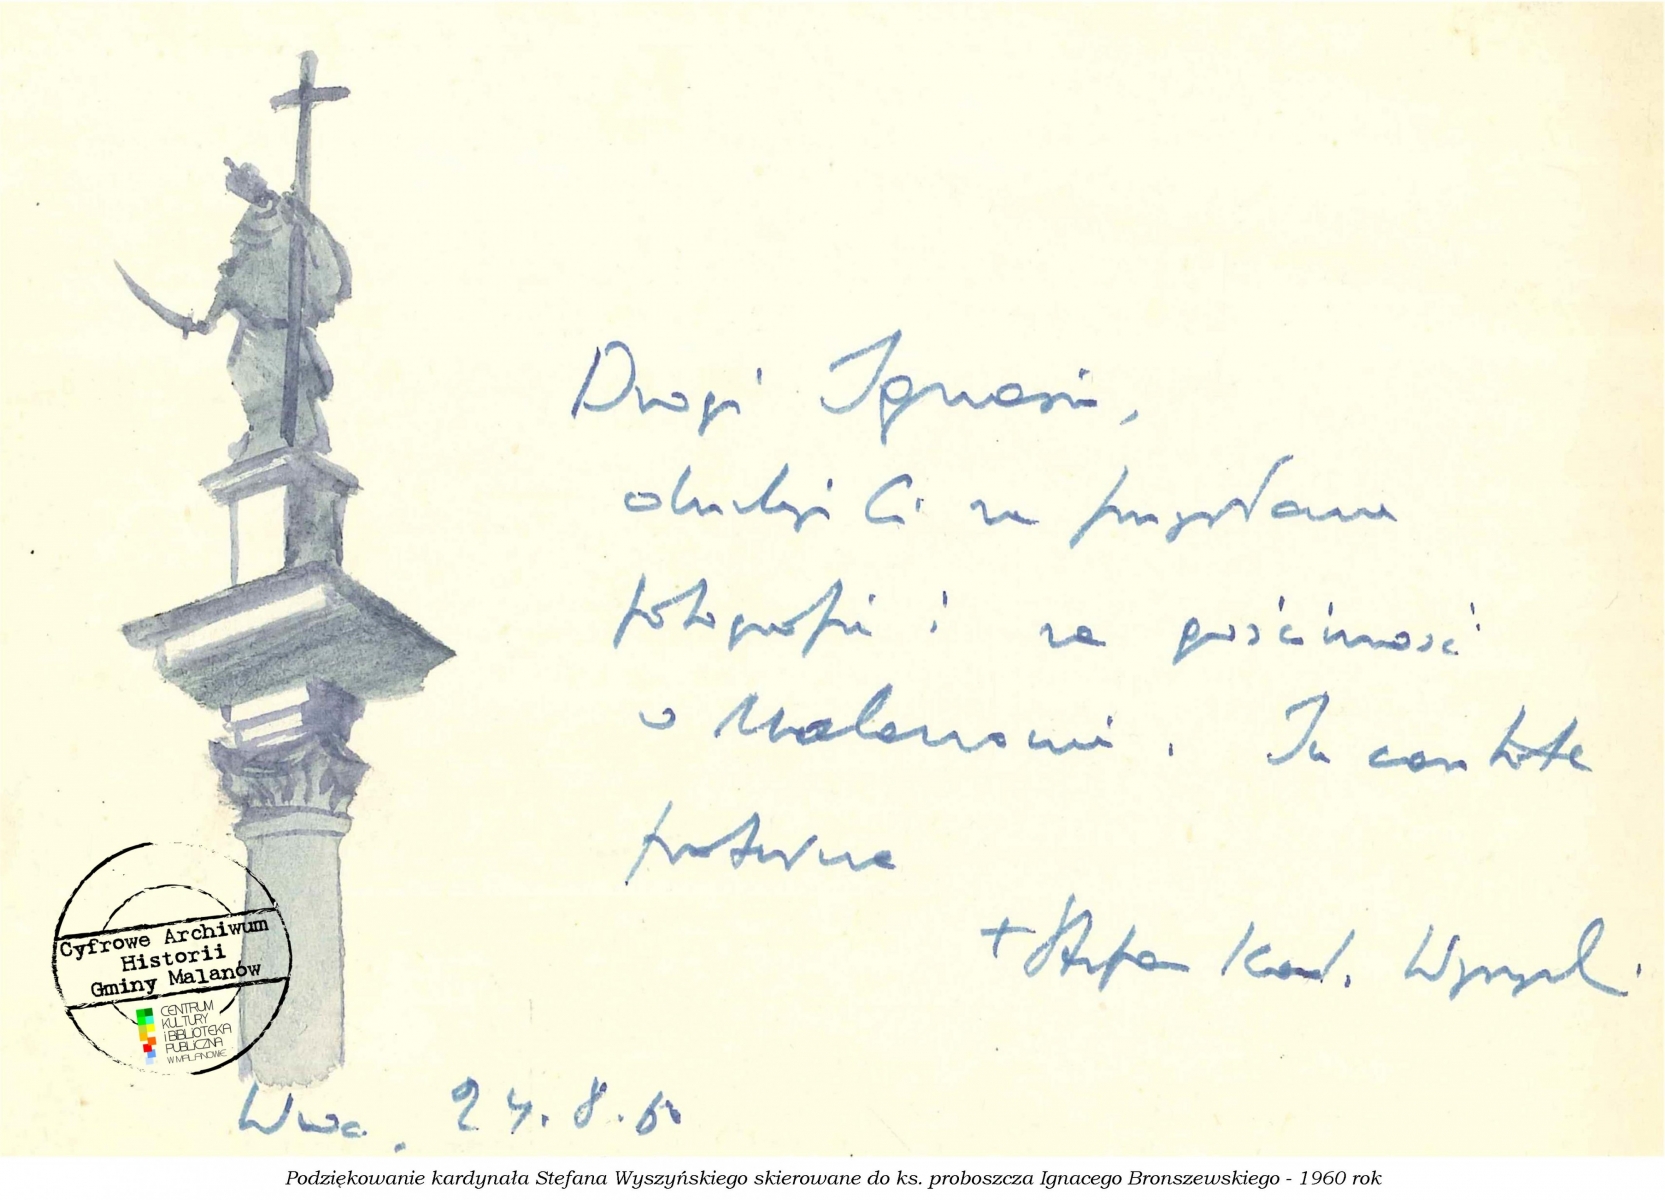 Drogi Ignasiu,
dziękuję Ci za przysłane
fotografie i za gościnność
w Malanowie. In caritate
fraterna
+ Stefan Kard. Wyszyński
Cyfrowe Archiwum
Historii
Gminy Malanów
CENTRUM
KULTURY
i BIBLIOTEKA
PUBLICZNA
W MALANOWIE
Wwa. 24.8.60
Podziękowanie kardynała Stefana Wyszyńskiego skierowane do ks. proboszcza Ignacego Bronszewskiego - 1960 rok